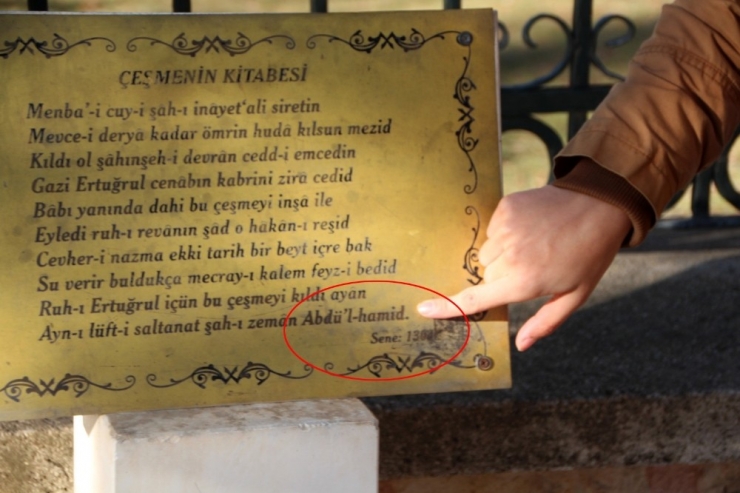 ÇEŞMENİN KİTABESİ
Menba'-i cuy-i şâh-ı inâyet'ali siretin
Mevce-i deryâ kadar ömrin hudâ kılsun mezid
Kıldı ol şâhınşeh-i devrân cedd-i emcedin
Gazi Ertuğrul cenâbın kabrini zirâ cedid
Bâbı yanında dahi bu çeşmeyi inşâ ile
Eyledi ruh-ı revânın şâd o hâkân-ı reşid
Cevher-i nazma ekki tarih bir beyt içre bak
Su verir buldukça mecray-ı kalem feyz-i bedid
Ruh-ı Ertuğrul içün bu çeşmeyi kıldı ayân
Ayn-ı lüft-i saltanat şah-ı zemân Abdü'l-hamid.
Sene: